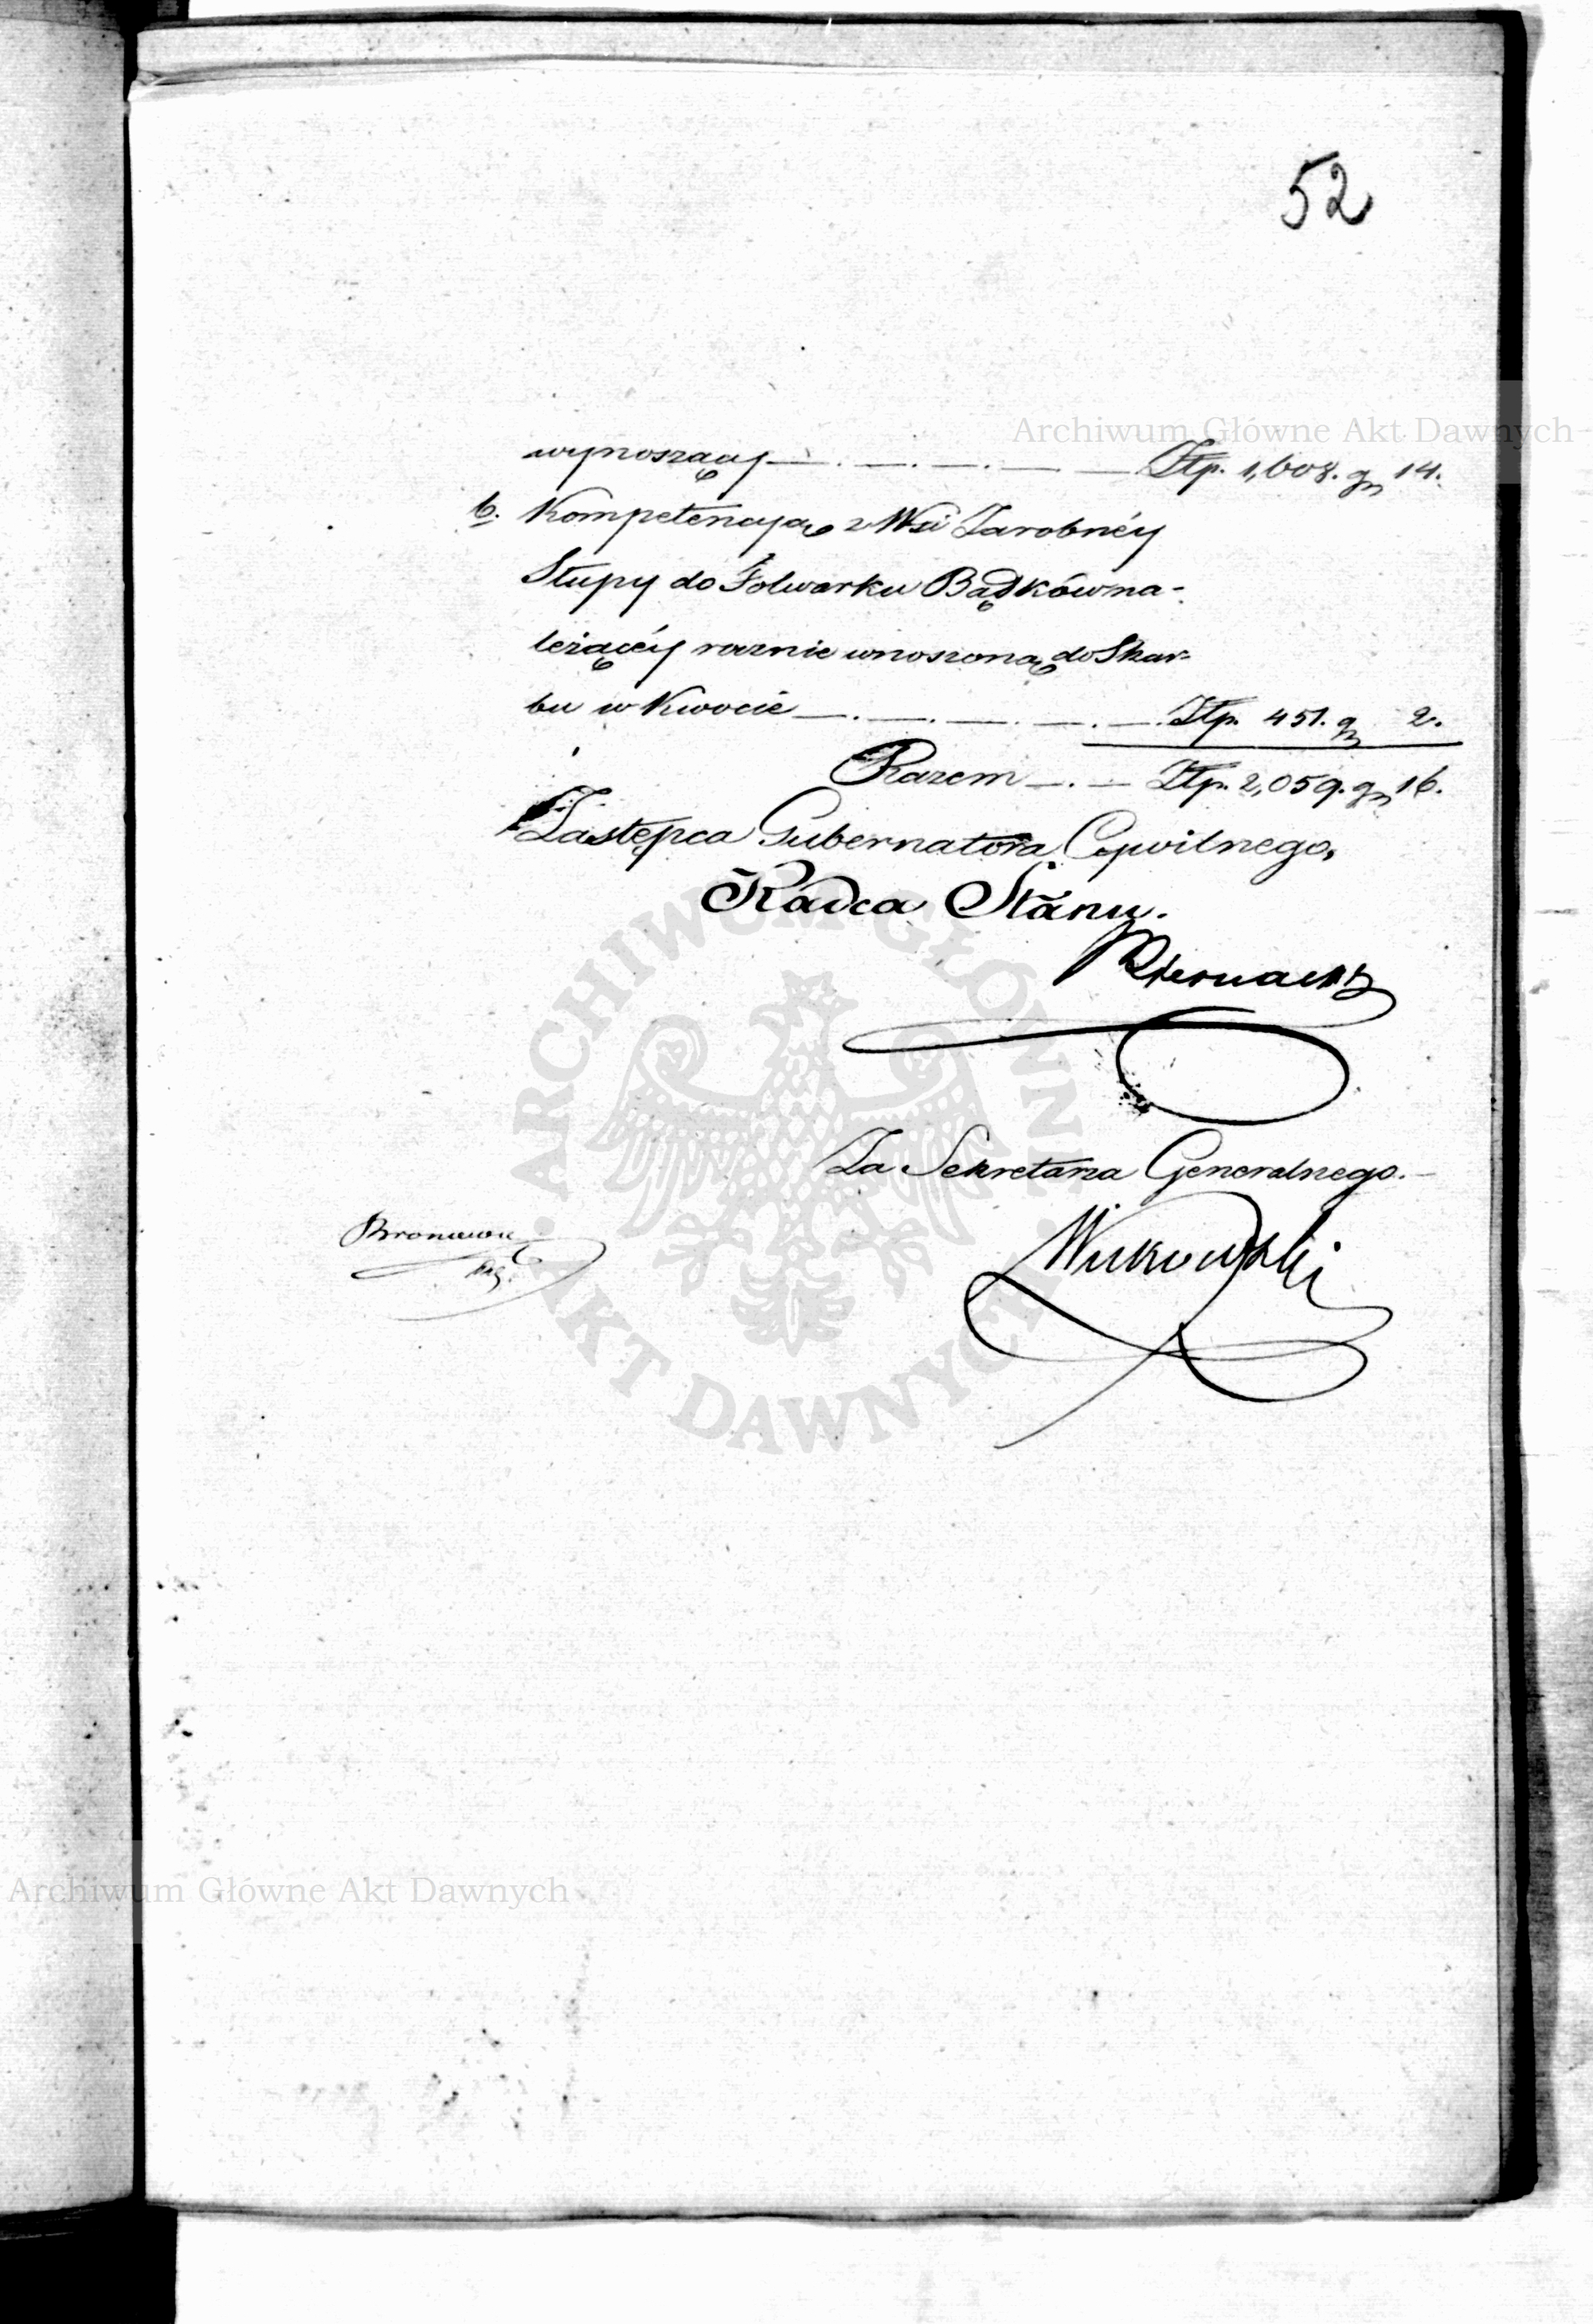 52
Archiwum Główne Akt Dawnych
wynoszący —. —. —. — — Złp. 1,608. gr 14.
b. Kompetencyą z Wsi Zarobnéy
Słupy do Folwarku Bądków na-
leżącéy rocznie wnoszoną do Skar-
bu w Kwocie —. —. —. —. —. Złp. 451. gr 2.
Razem —. — Złp. 2,059. gr 16.
Zastępca Gubernatora Cywilnego,
Radca Stanu.
Za Sekretarza Generalnego. —
ARCHIWUM GŁÓWNE · AKT DAWNYCH ·
Archiwum Główne Akt Dawnych